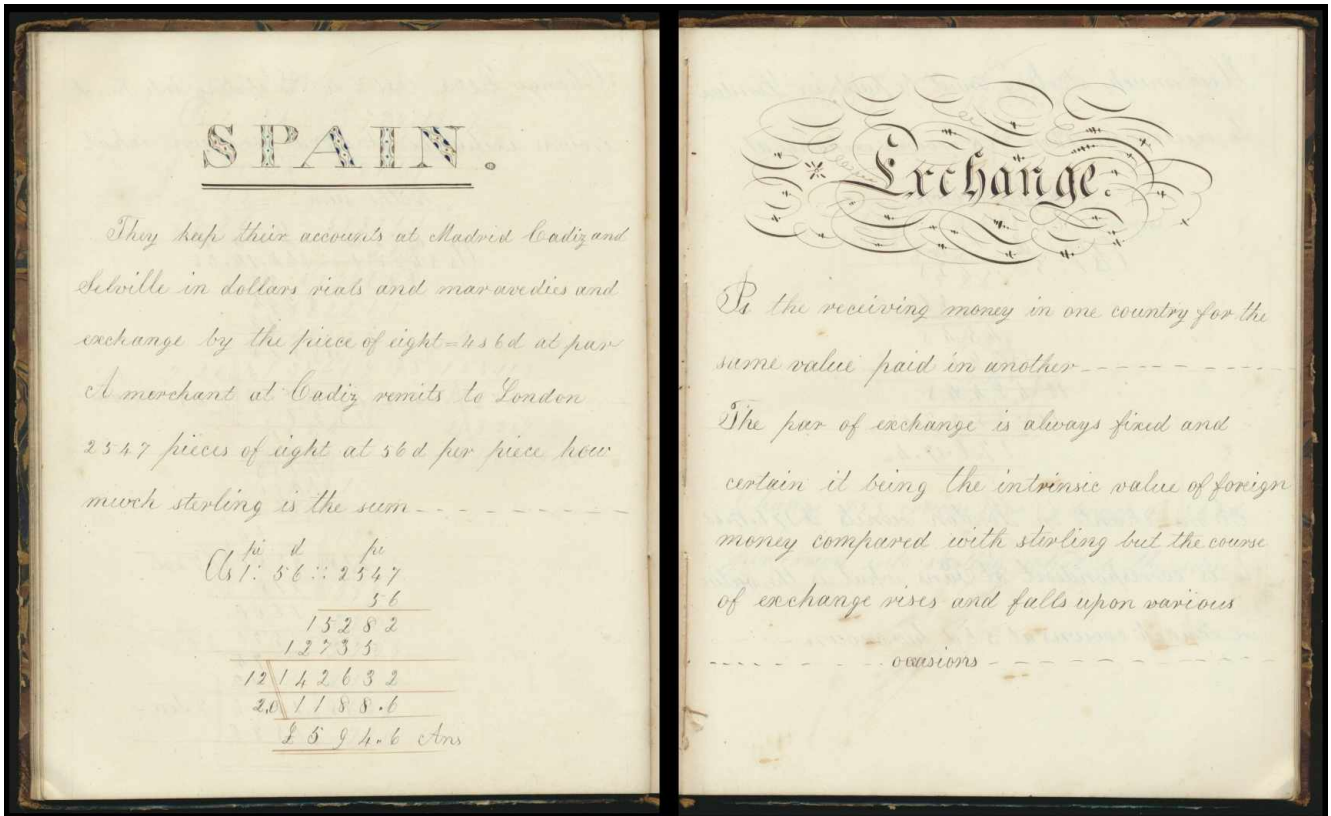 SPAIN.
They keep their accounts at Madrid Cadiz and
Selville in dollars rials and maravedies and
exchange by the piece of eight=4s 6d at par
A merchant at Cadiz remits to London
2547 pieces of eight at 56d per piece how
much sterling is the sum
pe d pe
As 1: 56 :: 2547
56
15282
12735
12 142632
2.0 1188.6
£594.6 Ans
Exchange.
Is the receiving money in one country for the
same value paid in another
The par of exchange is always fixed and
certain it being the intrinsic value of foreign
money compared with stirling but the course
of exchange rises and falls upon various
occasions